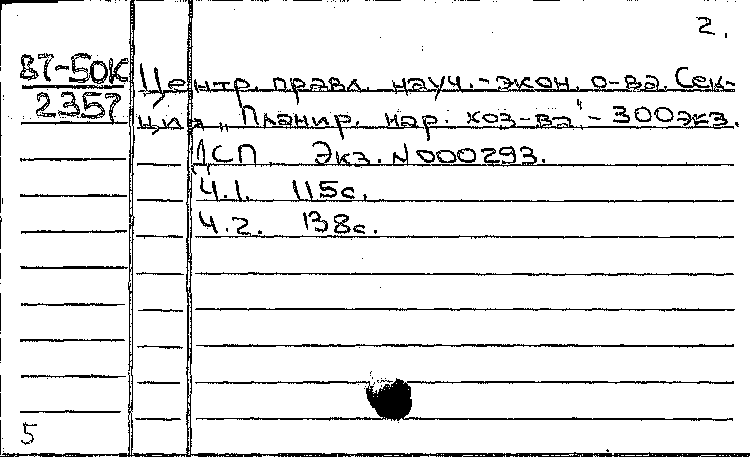 2.
87-50К Центр. правл. науч.-экон. о-ва. Сек-
2357 ция „Планир. нар. хоз-ва“ - 300экз.
ДСП. Экз. N 000293.
Ч.1. 115с.
Ч.2. 138с.
5